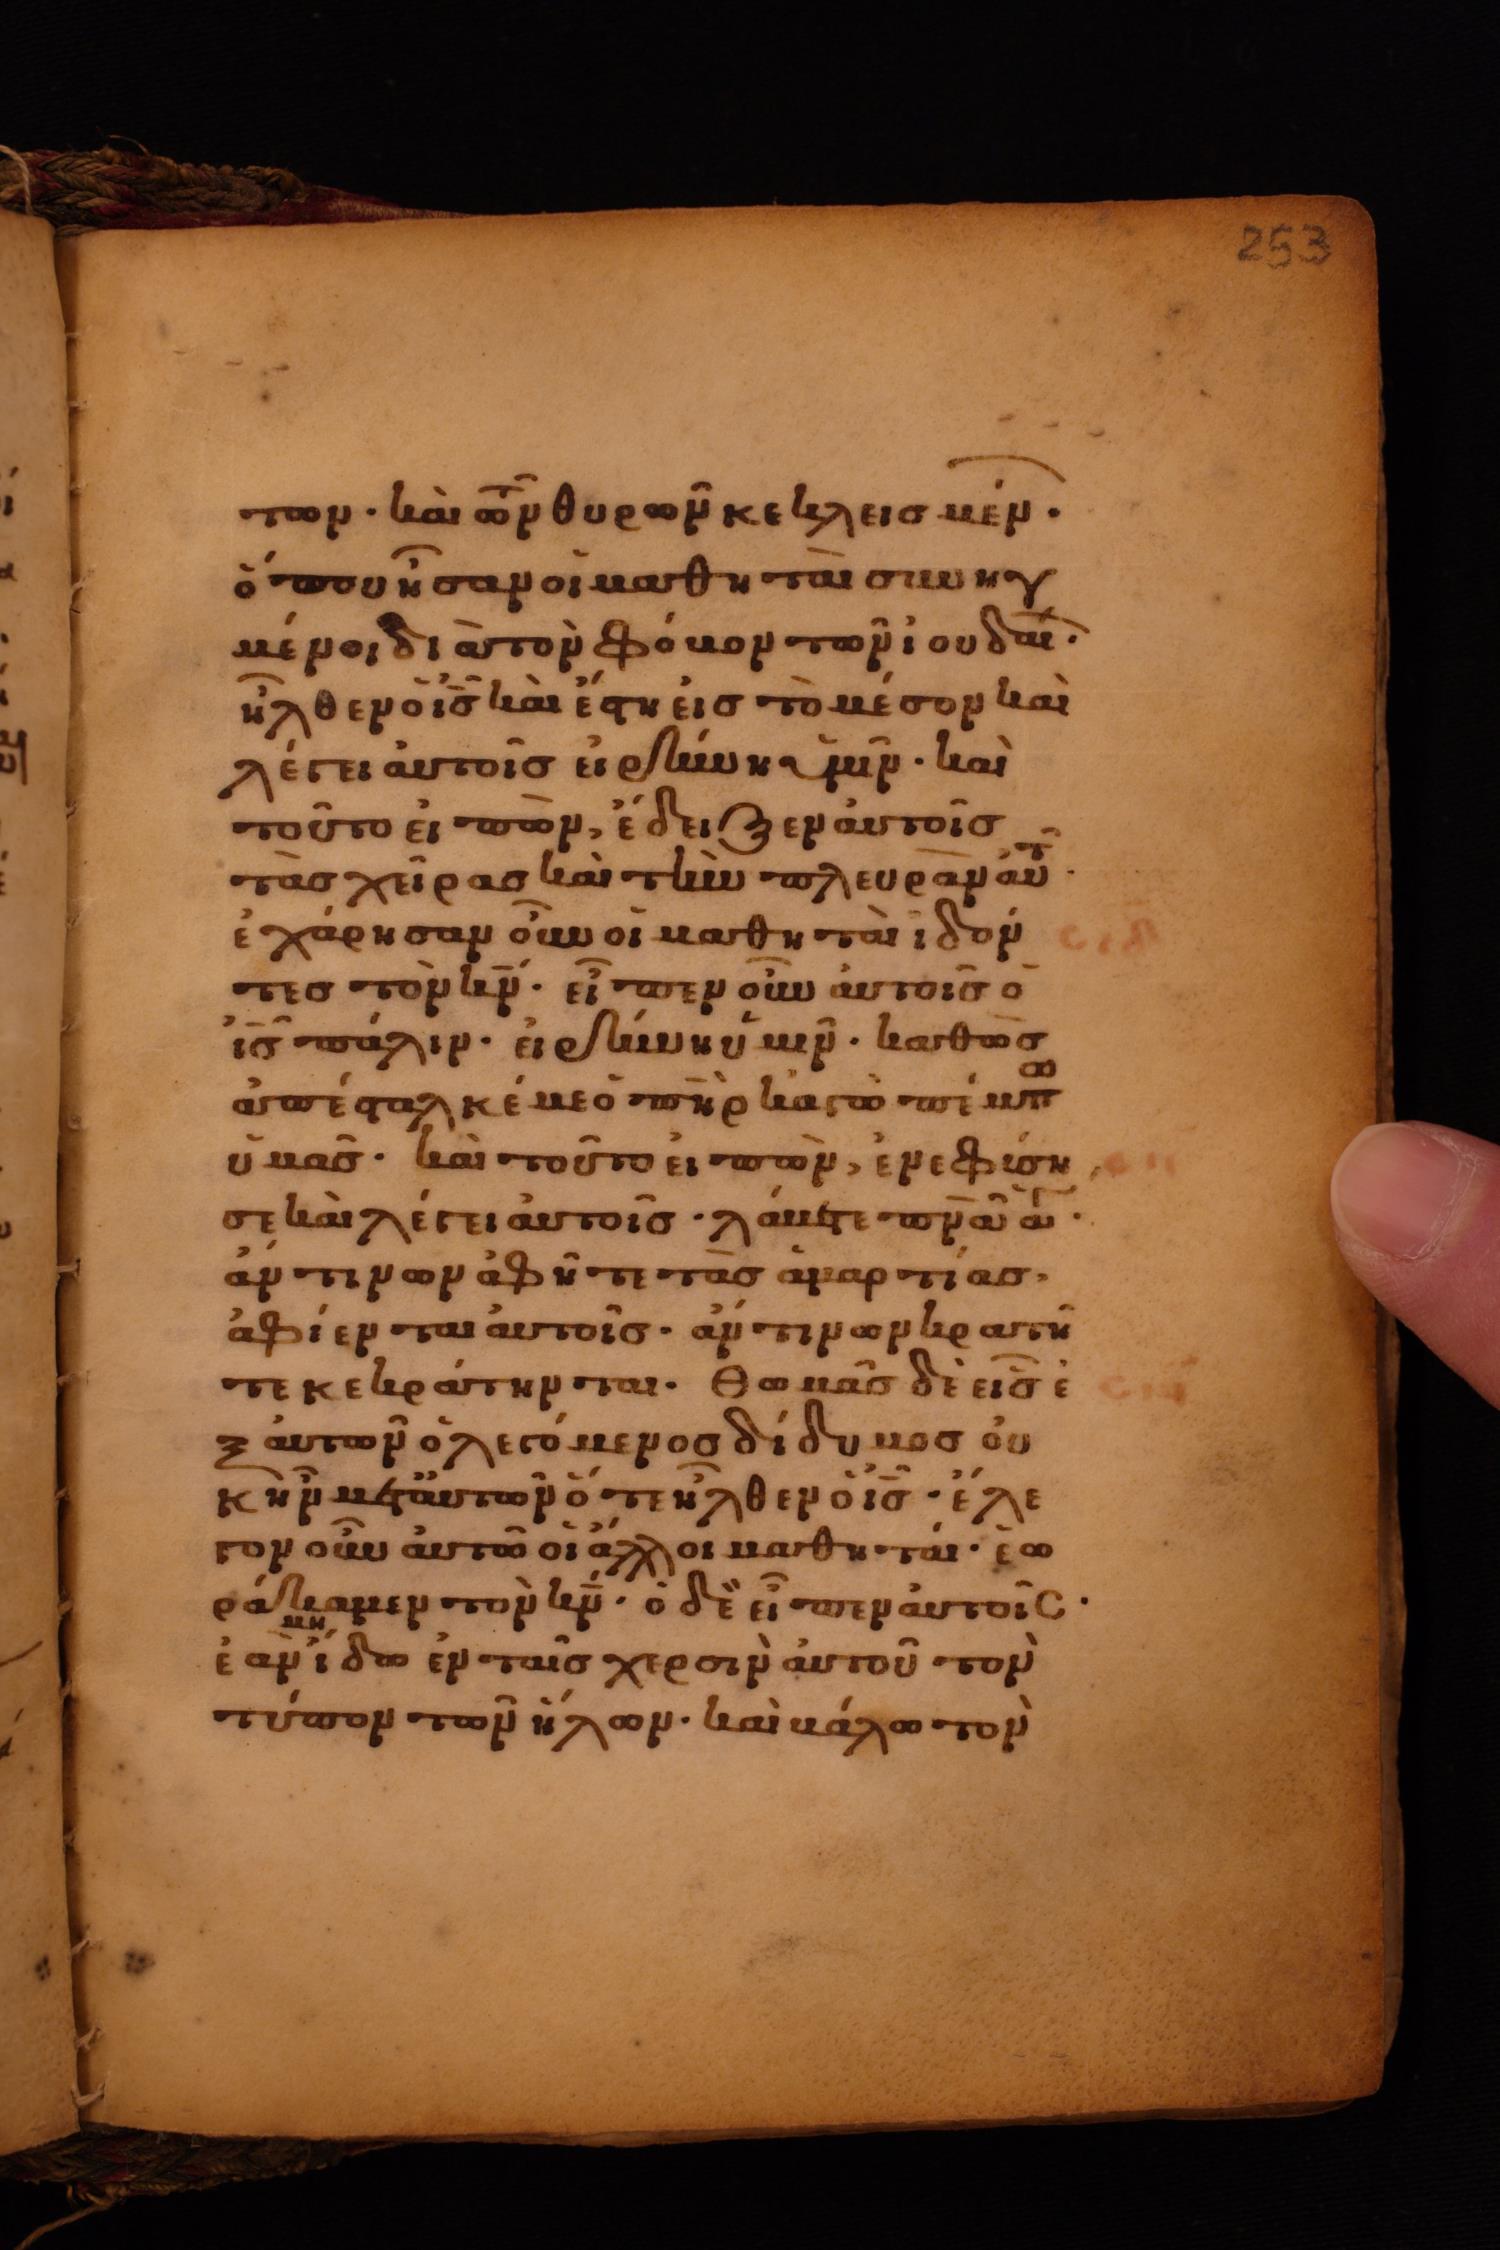 253
των· καὶ τῶν θυρῶν κεκλεισμέν·
ὅπου ἦσαν οἱ μαθηταὶ συνηγ
μένοι διὰ τὸν φόβον τῶν ἰουδαί·
ἦλθεν ὁ ἰς̄ καὶ ἔστη εἰς τὸ μέσον καὶ
λέγει αὐτοῖς εἰρήνη ὑμῖν· καὶ
τοῦτο εἰπὼν, ἔδειξεν αὐτοῖς
τὰς χεῖρας καὶ τὴν πλευρὰν αὐτ͂·
ἐχάρησαν οὖν οἱ μαθηταὶ ἰδόν
τες τὸν κν̄· εἶπεν οὖν αὐτοῖς ὁ
ἰς̄ πάλιν· εἰρήνη ὑμῖν· καθὼς
ἀπέσταλκέ με ὁ πη̄ρ κἀγὼ πέμπω
ὑμᾶς· καὶ τοῦτο εἰπὼν, ἐνεφύση
σε καὶ λέγει αὐτοῖς· λάβετε πν̄ᾱ ἅγ·
ἄν τινων ἀφῆτε τὰς ἁμαρτίας,
ἀφίενται αὐτοῖς· ἄν τινων κρατῆ
τε κεκράτηνται· Θωμᾶς δὲ εἷς ἐ
ξ αὐτῶν ὁ λεγόμενος δίδυμος οὐ
κ ἦν μετ᾽ αὐτῶν ὅτε ἦλθεν ὁ ἰς̄· ἔλε
γον οὖν αὐτῶ οἱ ἄλλοι μαθηταί· ἑω
ράκαμεν τὸν κν̄· ὁ δὲ εἶπεν αὐτοῖς·
ἐὰν μὴ ἴδω ἐν ταῖς χερσὶν αὐτοῦ τὸν
τύπον τῶν ἥλων· καὶ βάλω τὸν